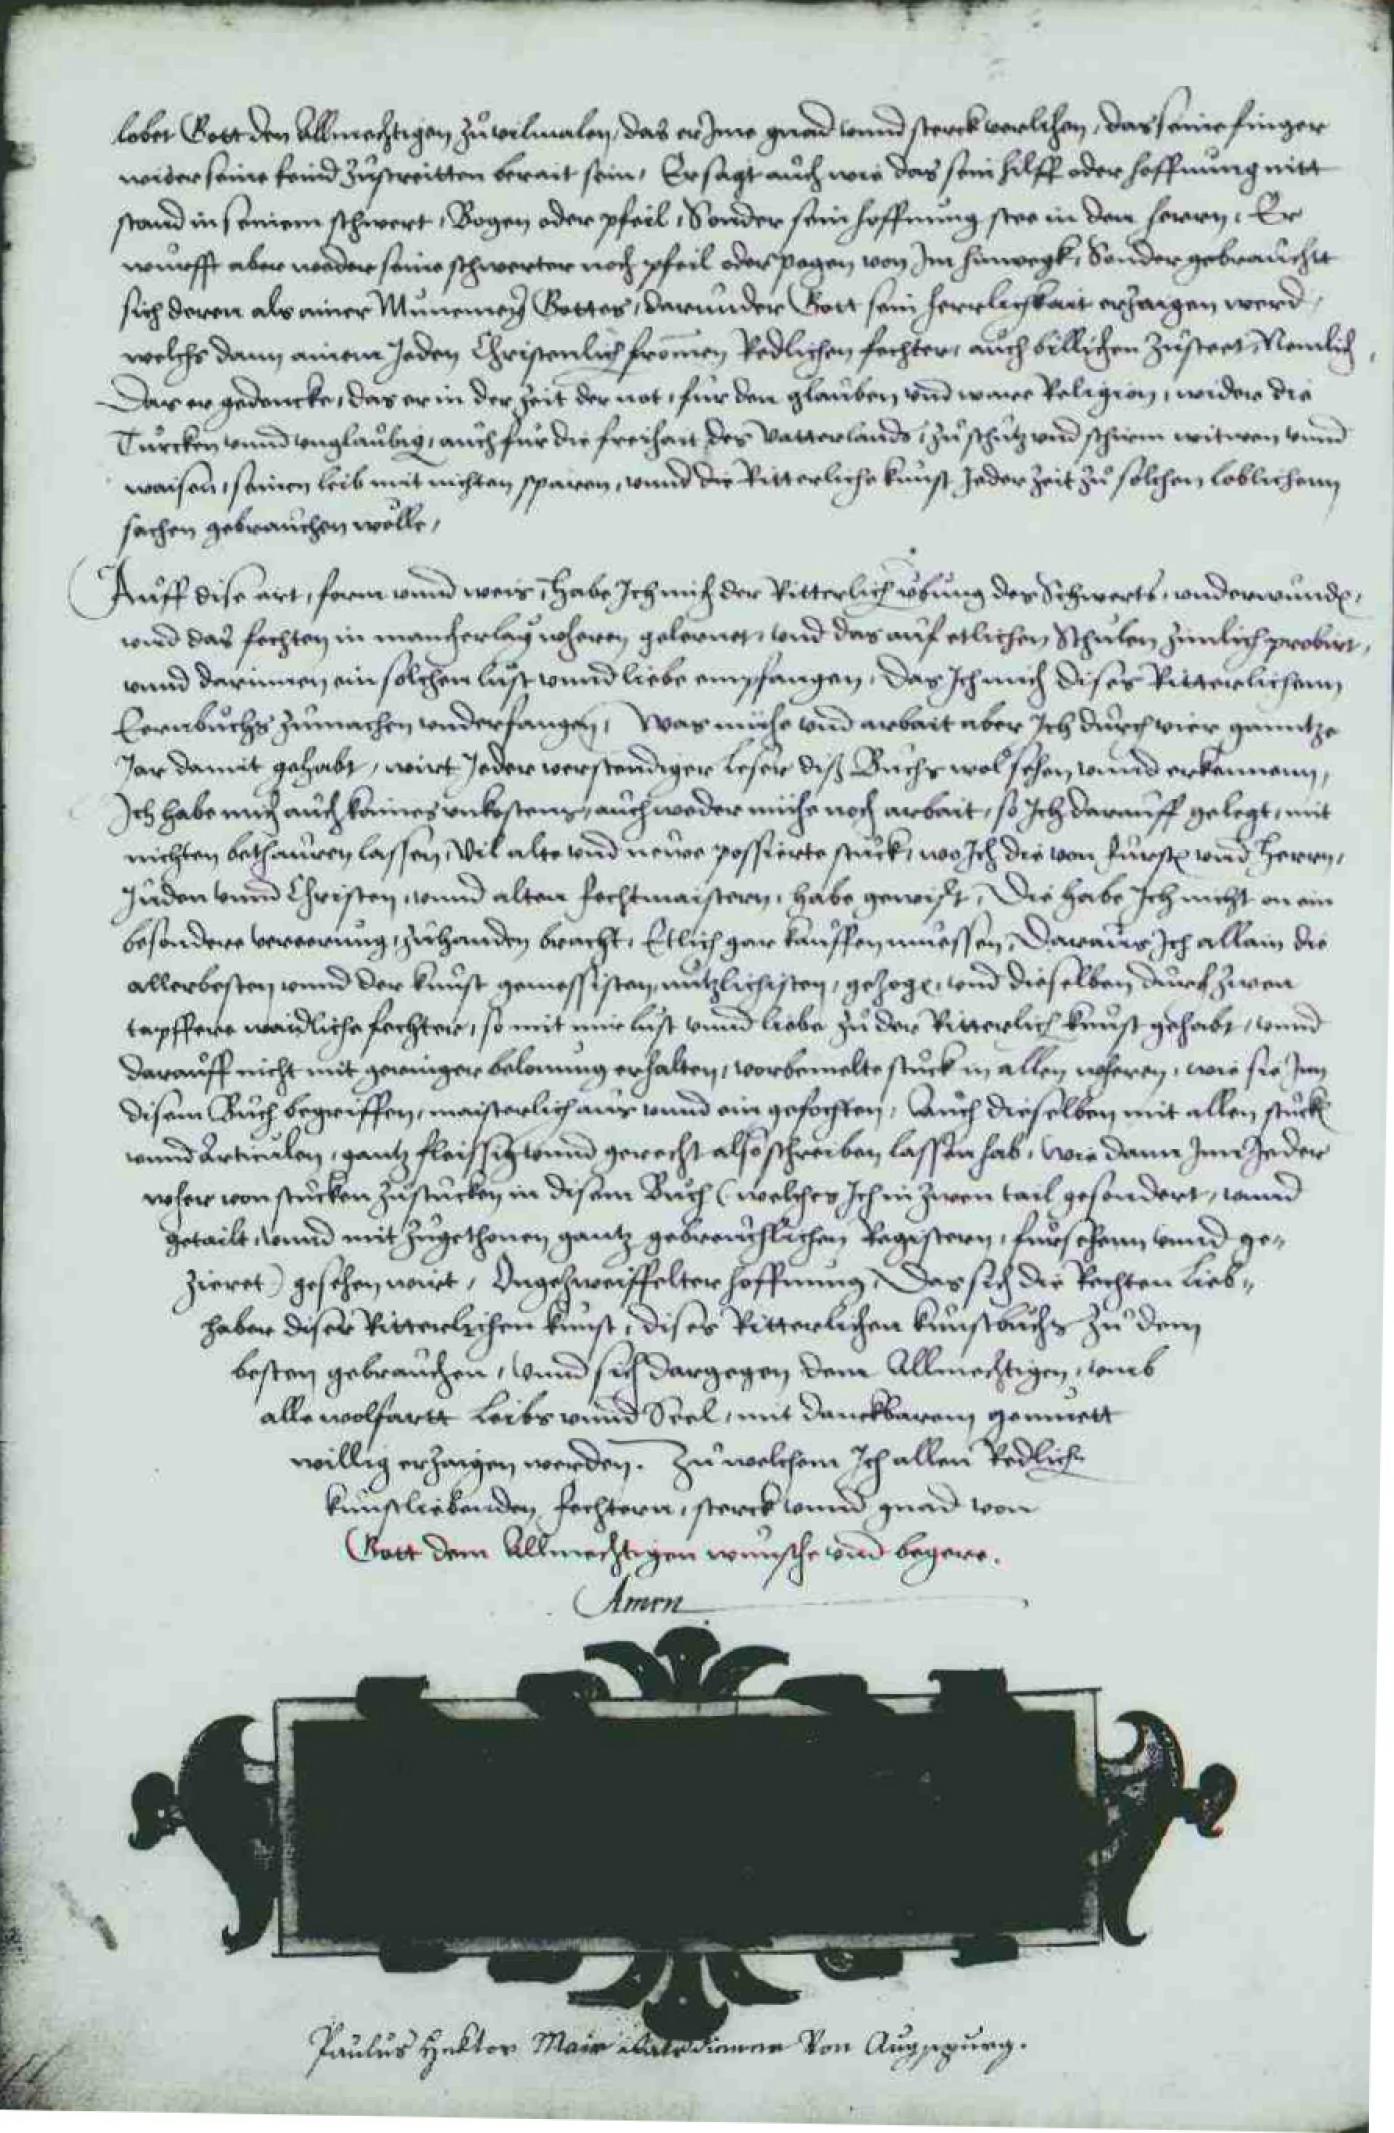 lobet Gott den Allmechtigen zů vilmalen, das er Jme gnad vnnd sterck verlihen, das seine finger
wider seine feind zůstreitten berait sein, Er sagt aůch wie das sein hilff oder hoffnůng nitt
stand in seinem schwert, Bogen oder pfeil, Sonder sein hoffnůng stee in dem herrn, Er
wůrfft aber weder seine schwerter noch pfeil oder pogen von Jm hinwegk, Sonder gebraůchtt
sich deren als ainer Můmmereÿ Gottes, darůnder Gott sein herrlichkait erzaigen werd,
welchs dann ainem Jeden Christenlich from̃en Redlichen fechter, aůch billichen zůsteet, Nemlich
Das er gedencke, das er in der zeit der not, fůr den glaůben vnd ware Religion, wider die
Tůrcken vnnd vnglaůbig, aůch fůr die freihait des Vatterlands, zů schůtz vnd schirm witwen vnnd
waisen, seinen leib mit nichten sparen, vnnd die Ritterliche kůnst Jeder zeit zů solchen loblichenn
sachen gebraůchen wőlle,
Aůff dise art, form vnnd weis, habe Jch mich der Ritterlich ůbůng des Schwerts, vnderwůnden,
vnd das fechten in mancherlaÿ wheren gelernet, vnd das aůf etlichen Schůlen zimlich probirt,
vnnd darinnen ein solchen lůst vnnd liebe empfangen, Das Jch mich dises Ritterlichenn
Eernbůchs zůmachen vnderfangen, Was mühe vnd arbait aber Jch důrch vier ganntze
Jar damit gehabt, wirt Jeder verstendiger leser diß Bůchs wol sehen vnnd erkennenn,
Jch habe mich aůch kaines vnkostens, aůch weder mühe noch arbait, so Jch daraůff gelegt, mit
nichten bethaůren lassen, Vil alte vnd neůe possierte stůck, wo Jch die von fůrsten vnd Herrn,
Jůden vnnd Christen, vnnd alten fechtmaistern, habe gewißt, Die habe Jch nicht on ein
besondere vereerůng, zůhanden bracht, Etlich gar kaůffen müessen, Daraůs Jch allain die
allerbesten vnnd der kůnst gemessisten, nůtzlichisten, gezogen, vnd dieselben důrch zwen
tapffere waidliche fechter, so mit mir lůst vnnd liebe zů der Ritterlich kůnst gehabt, vnnd
daraůff nicht mit geringer belonůng erhalten, vorbemelte stůck in allen wheren, wie sie Jnn
disem Bůch begriffen, maisterlich aůs vnnd ein gefochten, Aůch dieselben mit allen stůcken
vnnd Articůlen, gantz fleissig vnnd gerecht also schreiben lassen hab, Wie dann Jnn Jeder
wher von stůcken zů stůcken in disem Bůch (welches Jch in zwen tail gesondert, vnnd
getailt, vnnd mit zůgethonen gantz gebreůchlichen Registern, fůrsehenn vnnd ge„
zieret) gesehen wirt, Vngezweiffelter hoffnůng, Das sich die Rechten Lieb„
haber diser Ritterlichen kůnst, dises Ritterlichen kůnstbůchs zů dem
besten gebraůchen, Vnnd sich dargegen dem Allmechtigen, vmb
alle wolfartt Leibs vnnd Seel, mit danckbarem gemüett
willig erzaigen werden. Zů welchem Jch allen Redlichen
kůnstliebenden fechtern, sterck vnnd gnad von
Gott dem Allmechtigen wůnsche vnd begere.
Amen
Paůlůs Hektor Mair Von Aůgspůrg.